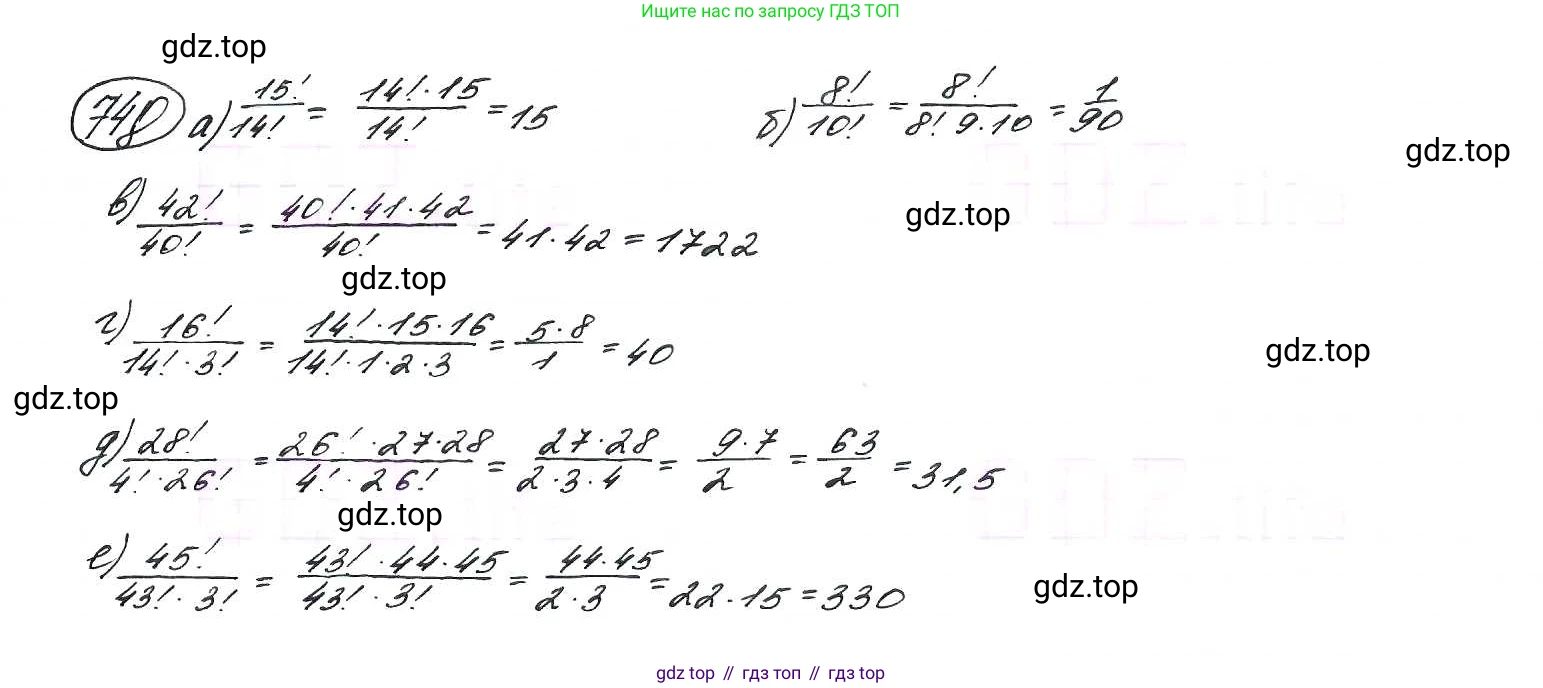 Ищите нас по запросу ГДЗ ТОП
gdz.top
748 а) 15!/14! = 14!·15/14! = 15 б) 8!/10! = 8!/8! 9·10 = 1/90
gdz.top
в) 42!/40! = 40!·41·42/40! = 41·42 = 1722
gdz.top
gdz.top
г) 16!/14!·3! = 14!·15·16/14!·1·2·3 = 5·8/1 = 40
gdz.top
gdz.top
д) 28!/4!·26! = 26!·27·28/4!·26! = 27·28/2·3·4 = 9·7/2 = 63/2 = 31,5
gdz.top
е) 45!/43!·3! = 43!·44·45/43!·3! = 44·45/2·3 = 22·15 = 330
gdz.top
gdz top // гдз топ // gdz top